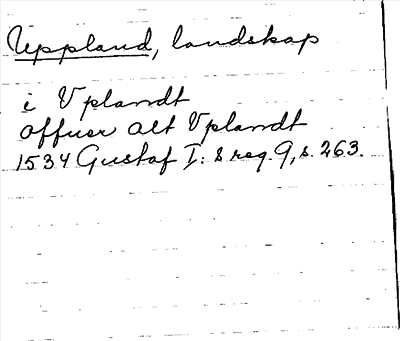 Uppland, landskap
i Vplandt
offuer alt Vplandt
1534 Gustaf I:s reg. 9, s. 263.